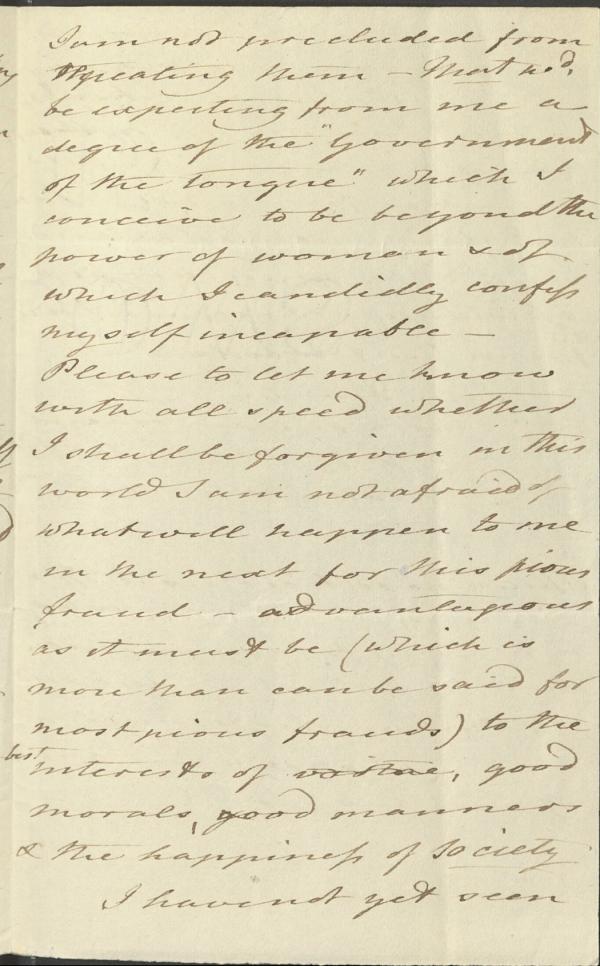 I am not precluded from
repeating them – That wd.
be expecting from me a
degree of the "Government
of the tongue" which I
conceive to be beyond the
power of woman & of
which I candidly confess
myself incapable –
Please to let me know
with all speed whether
I shall be forgiven in this
world I am not afraid of
what will happen to me
in the next for this pious
fraud – advantageous
as it must be (which is
more than can be said for
most pious frauds) to the
best
interests of virtue, good
morals, good manners
& the happiness of Society
I have not yet seen